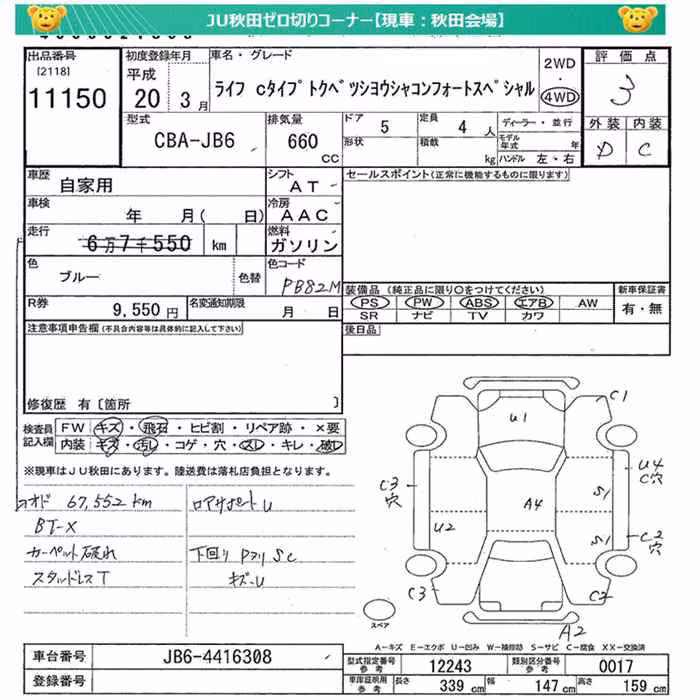 JU秋田ゼロ切りコーナー【現車：秋田会場】
出品番号 初度登録年月 車名・グレード 2WD ・ 4WD 評価点
[2118] 平成
11150 20 3月 ライフ Cタイプ トクベツシヨウシャコンフォートスペシャル 3
型式 排気量 ドア 5 定員 4人 ディーラー・並行 外装 内装
CBA-JB6 660 CC 形状 積載 kg モデル年式 年 ハンドル 左・右 D C
車歴 自家用 シフト AT セールスポイント(正常に機能するものに限ります)
車検 年 月( 日) 冷房 AAC
走行 6万7千550 km 燃料 ガソリン
色 ブルー 色替 色コード PB82M
装備品(純正品に限り○をつけてください) 新車保証書
PS PW ABS エアB AW 有・無
R券 9,550円 名変通知期限 月 日 SR ナビ TV カワ
注意事項申告欄(不具合内容等は具体的に記入して下さい) 後日品
修復歴 有〔箇所 〕
検査員記入欄 FW キズ・飛石・ヒビ割・リペア跡・×要
内装 キズ・汚レ・コゲ・穴・スレ・キレ・破レ
※現車はJU秋田にあります。陸送費は落札店負担となります。
オド 67,552km ロアサポートU
BT-X
カーペット破れ 下回り Pヌリ SC
スタッドレスT キズ-U
C1
U1
C3 穴 U4 C穴
A4 S1
U2 S1 C2 穴
C3 C2
スペア A2
A－キズ E－エクボ U－凹み W－補修跡 S－サビ C－腐食 XX－交換済
車台番号 JB6-4416308 型式指定番号 参考 12243 類別区分番号 参考 0017
登録番号 車庫証明用 参考 長さ 339 cm 幅 147 cm 高さ 159 cm